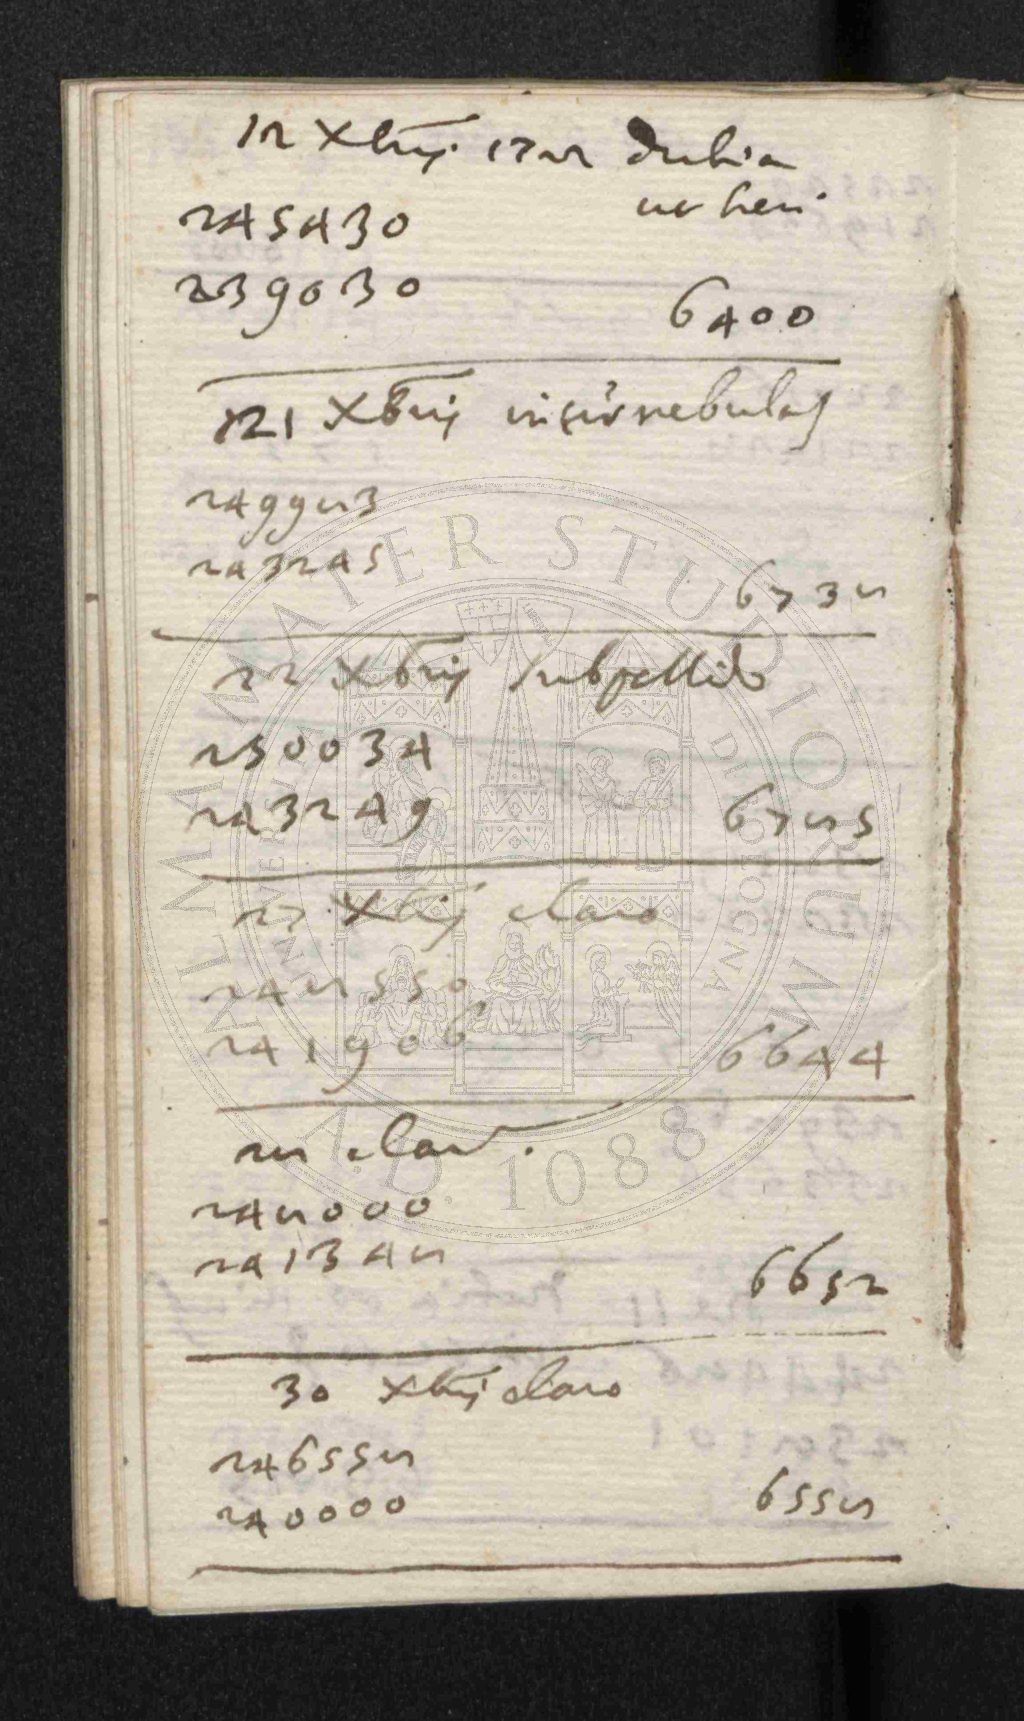 12 Xbrij 1782 dubia
ut heri
245430
239030 6400
21 Xbrij inter nebulas
249983
243245 6738
22 Xbrij subpallido
250034
243249 6785
27 Xbrij claro
248550
241906 6644
28 claro.
248000
241348 6652
30 Xbrij claro
246558
240000 6558
ALMA MATER STUDIORUM
A.D. 1088
UNIVERSITÀ DI BOLOGNA